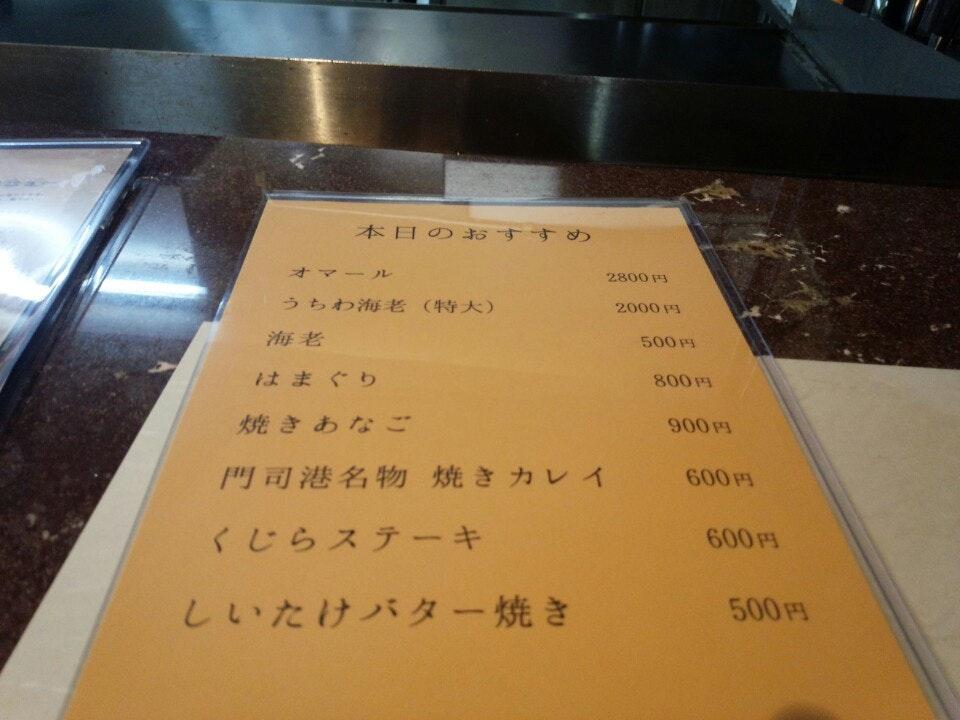 本日のおすすめ
オマール 2800円
うちわ海老（特大） 2000円
海老 500円
はまぐり 800円
焼きあなご 900円
門司港名物 焼きカレイ 600円
くじらステーキ 600円
しいたけバター焼き 500円